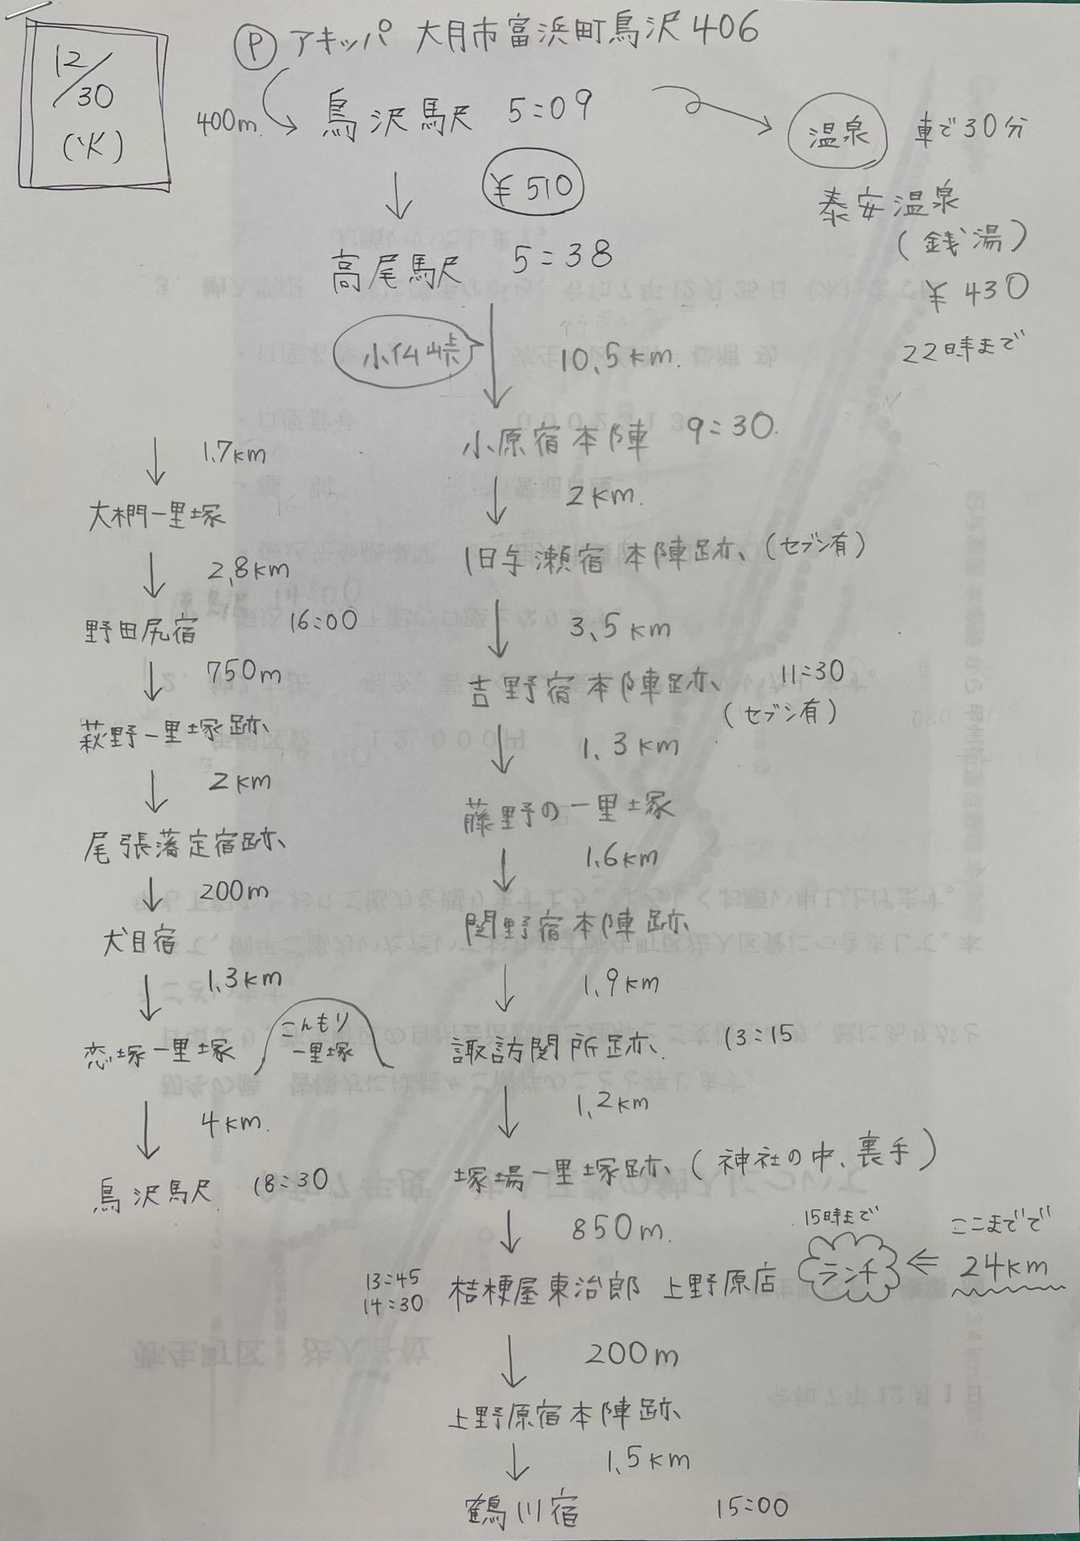 12/30
(火)
Ⓟ アキッパ 大月市富浜町鳥沢406
400m.
鳥沢駅 5:09
¥510
高尾駅 5:38
小仏峠
10.5km.
小原宿本陣 9:30.
2km.
旧与瀬宿本陣跡 (セブン有)
3.5km
吉野宿本陣跡 11:30
(セブン有)
1.3km
藤野の一里塚
1.6km
関野宿本陣跡
1.9km
諏訪関所跡 13:15
1.2km
塚場一里塚跡 (神社の中、裏手)
850m.
13:45
14:30
桔梗屋東治郎 上野原店
15時まで
ランチ
ここまでで
24km
200m
上野原宿本陣跡
1.5km
鶴川宿 15:00
1.7km
大椚一里塚
2.8km
野田尻宿 16:00
750m
萩野一里塚跡
2km
尾張藩定宿跡
200m
犬目宿
1.3km
恋塚一里塚
こんもり
一里塚
4km.
鳥沢駅 18:30
温泉 車で30分
泰安温泉
(銭湯)
¥430
22時まで